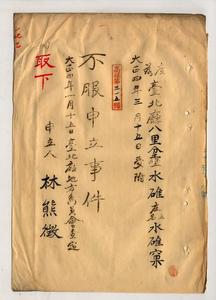 取下
臺北廳八里坌堡水碓庄土名水碓窠
大正四年三月十五日受附
高等第二一五號
不服申立事件
大正四年一月十五日臺北廳地方委員會查定
申立人 林熊徵